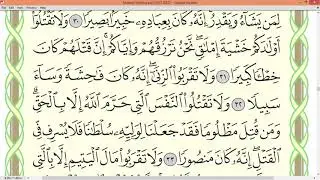 لِمَن يَشَآءُ وَيَقْدِرُ إِنَّهُۥ كَانَ بِعِبَادِهِۦ خَبِيرًۢا بَصِيرًا ٣٠ وَلَا تَقْتُلُوٓا۟
أَوْلَٰدَكُمْ خَشْيَةَ إِمْلَٰقٍ نَّحْنُ نَرْزُقُهُمْ وَإِيَّاكُمْ إِنَّ قَتْلَهُمْ كَانَ
خِطْـًٔا كَبِيرًا ٣١ وَلَا تَقْرَبُوا۟ ٱلزِّنَىٰٓ إِنَّهُۥ كَانَ فَٰحِشَةً وَسَآءَ
سَبِيلًا ٣٢ وَلَا تَقْتُلُوا۟ ٱلنَّفْسَ ٱلَّتِى حَرَّمَ ٱللَّهُ إِلَّا بِٱلْحَقِّ
وَمَن قُتِلَ مَظْلُومًا فَقَدْ جَعَلْنَا لِوَلِيِّهِۦ سُلْطَٰنًا فَلَا يُسْرِف فِّى
ٱلْقَتْلِ إِنَّهُۥ كَانَ مَنصُورًا ٣٣ وَلَا تَقْرَبُوا۟ مَالَ ٱلْيَتِيمِ إِلَّا بِٱلَّتِى